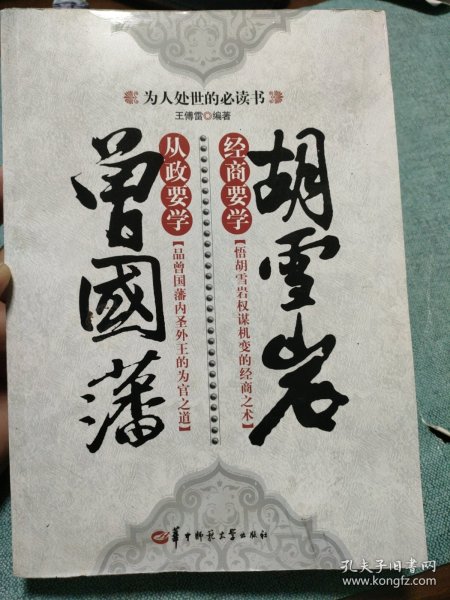 为人处世的必读书
王傅雷◎编著
从政要学
曾國藩
【品曾国藩内圣外王的为官之道】
经商要学
胡雪岩
【悟胡雪岩权谋机变的经商之术】
华中师范大学出版社
孔夫子旧书网
www.kongfz.com